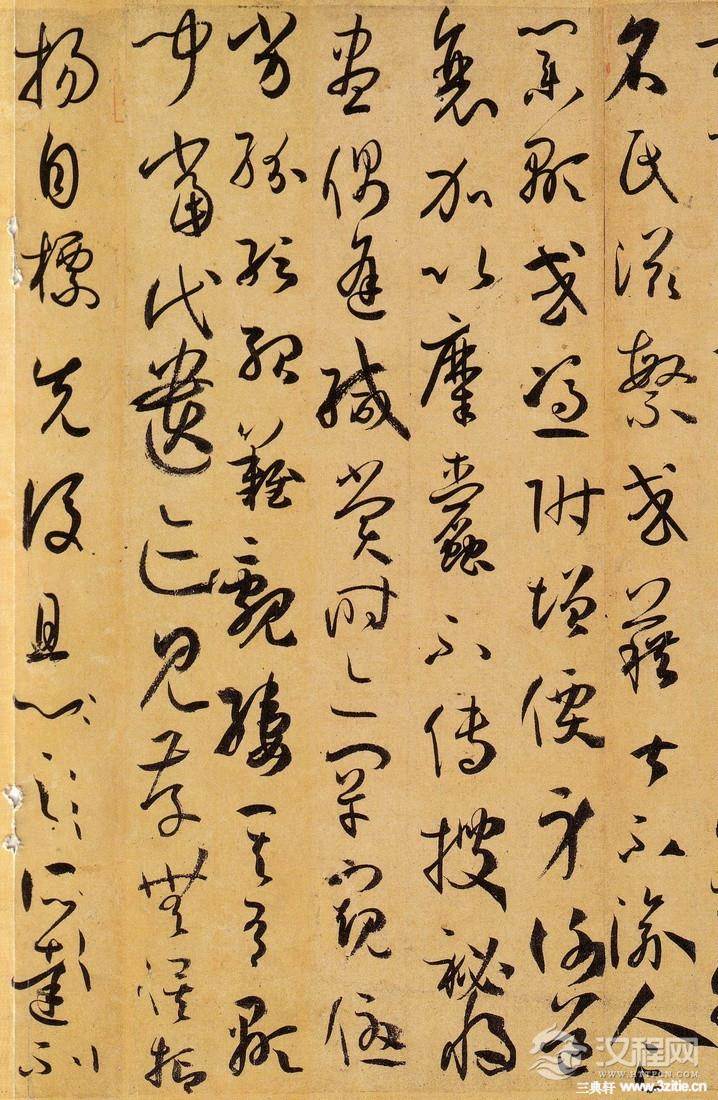 名氏滋繁或藉甚不渝人亡
業顯或憑附增價身謝道
衰加以糜蠹不傳搜祕將
盡偶逢緘賞時亦罕窺優
劣紛紜殆難覼縷其有顯
聞當代遺跡見存無俟抑
揚自標先後且
汉程网
WWW.HTTPCN.COM
三典轩 www.3zitie.cn